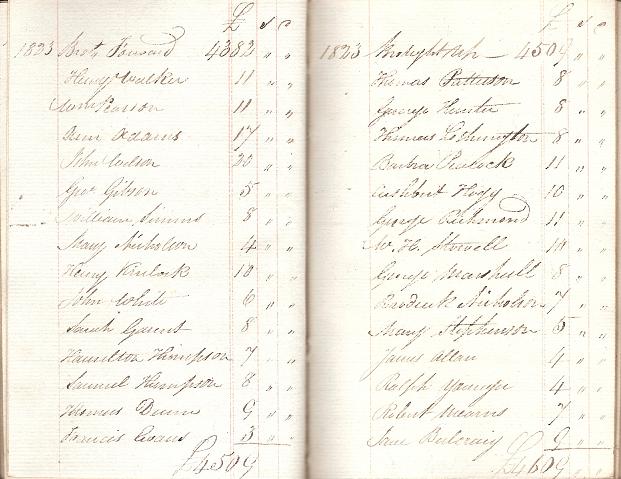 £ s d
1823 Brot Forward 4382 " "
Henry Walker 11 " "
Wm Pearson 11 " "
Adams 17 " "
John Wilson 20 " "
Geo Gibson 5 " "
William Simms 8 " "
Mary Nicholson 4 " "
Henry Kinlock 10 " "
John White 6 " "
Sarah 8 " "
Hamilton Thompson 7 " "
Samuel Thompson 8 " "
Thomas Dunn 9 " "
Francis Evans 3 " "
£4509
£ s d
1823 Brought up 4509 " "
Thomas Patterson 8 " "
George Hunter 8 " "
Thomas 8 " "
Barbra Peacock 11 " "
Cuthbert Hogg 10 " "
George Richmond 11 " "
W. H. Stowell 10 " "
George Marshall 8 " "
Broderick Nicholson 7 " "
Mary Stephenson 5 " "
James Allan 4 " "
Ralph Younger 4 " "
Robert Mearns 7 " "
Jane 9 " "
£4609